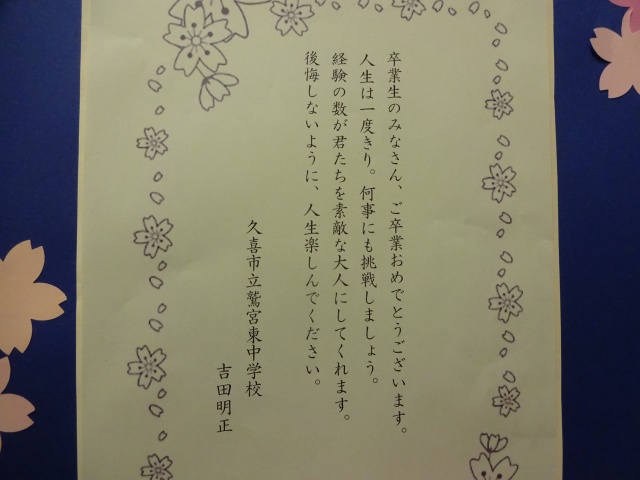 卒業生のみなさん、ご卒業おめでとうございます。
人生は一度きり。何事にも挑戦しましょう。
経験の数が君たちを素敵な大人にしてくれます。
後悔しないように、人生楽しんでください。
久喜市立鷲宮東中学校
吉田明正